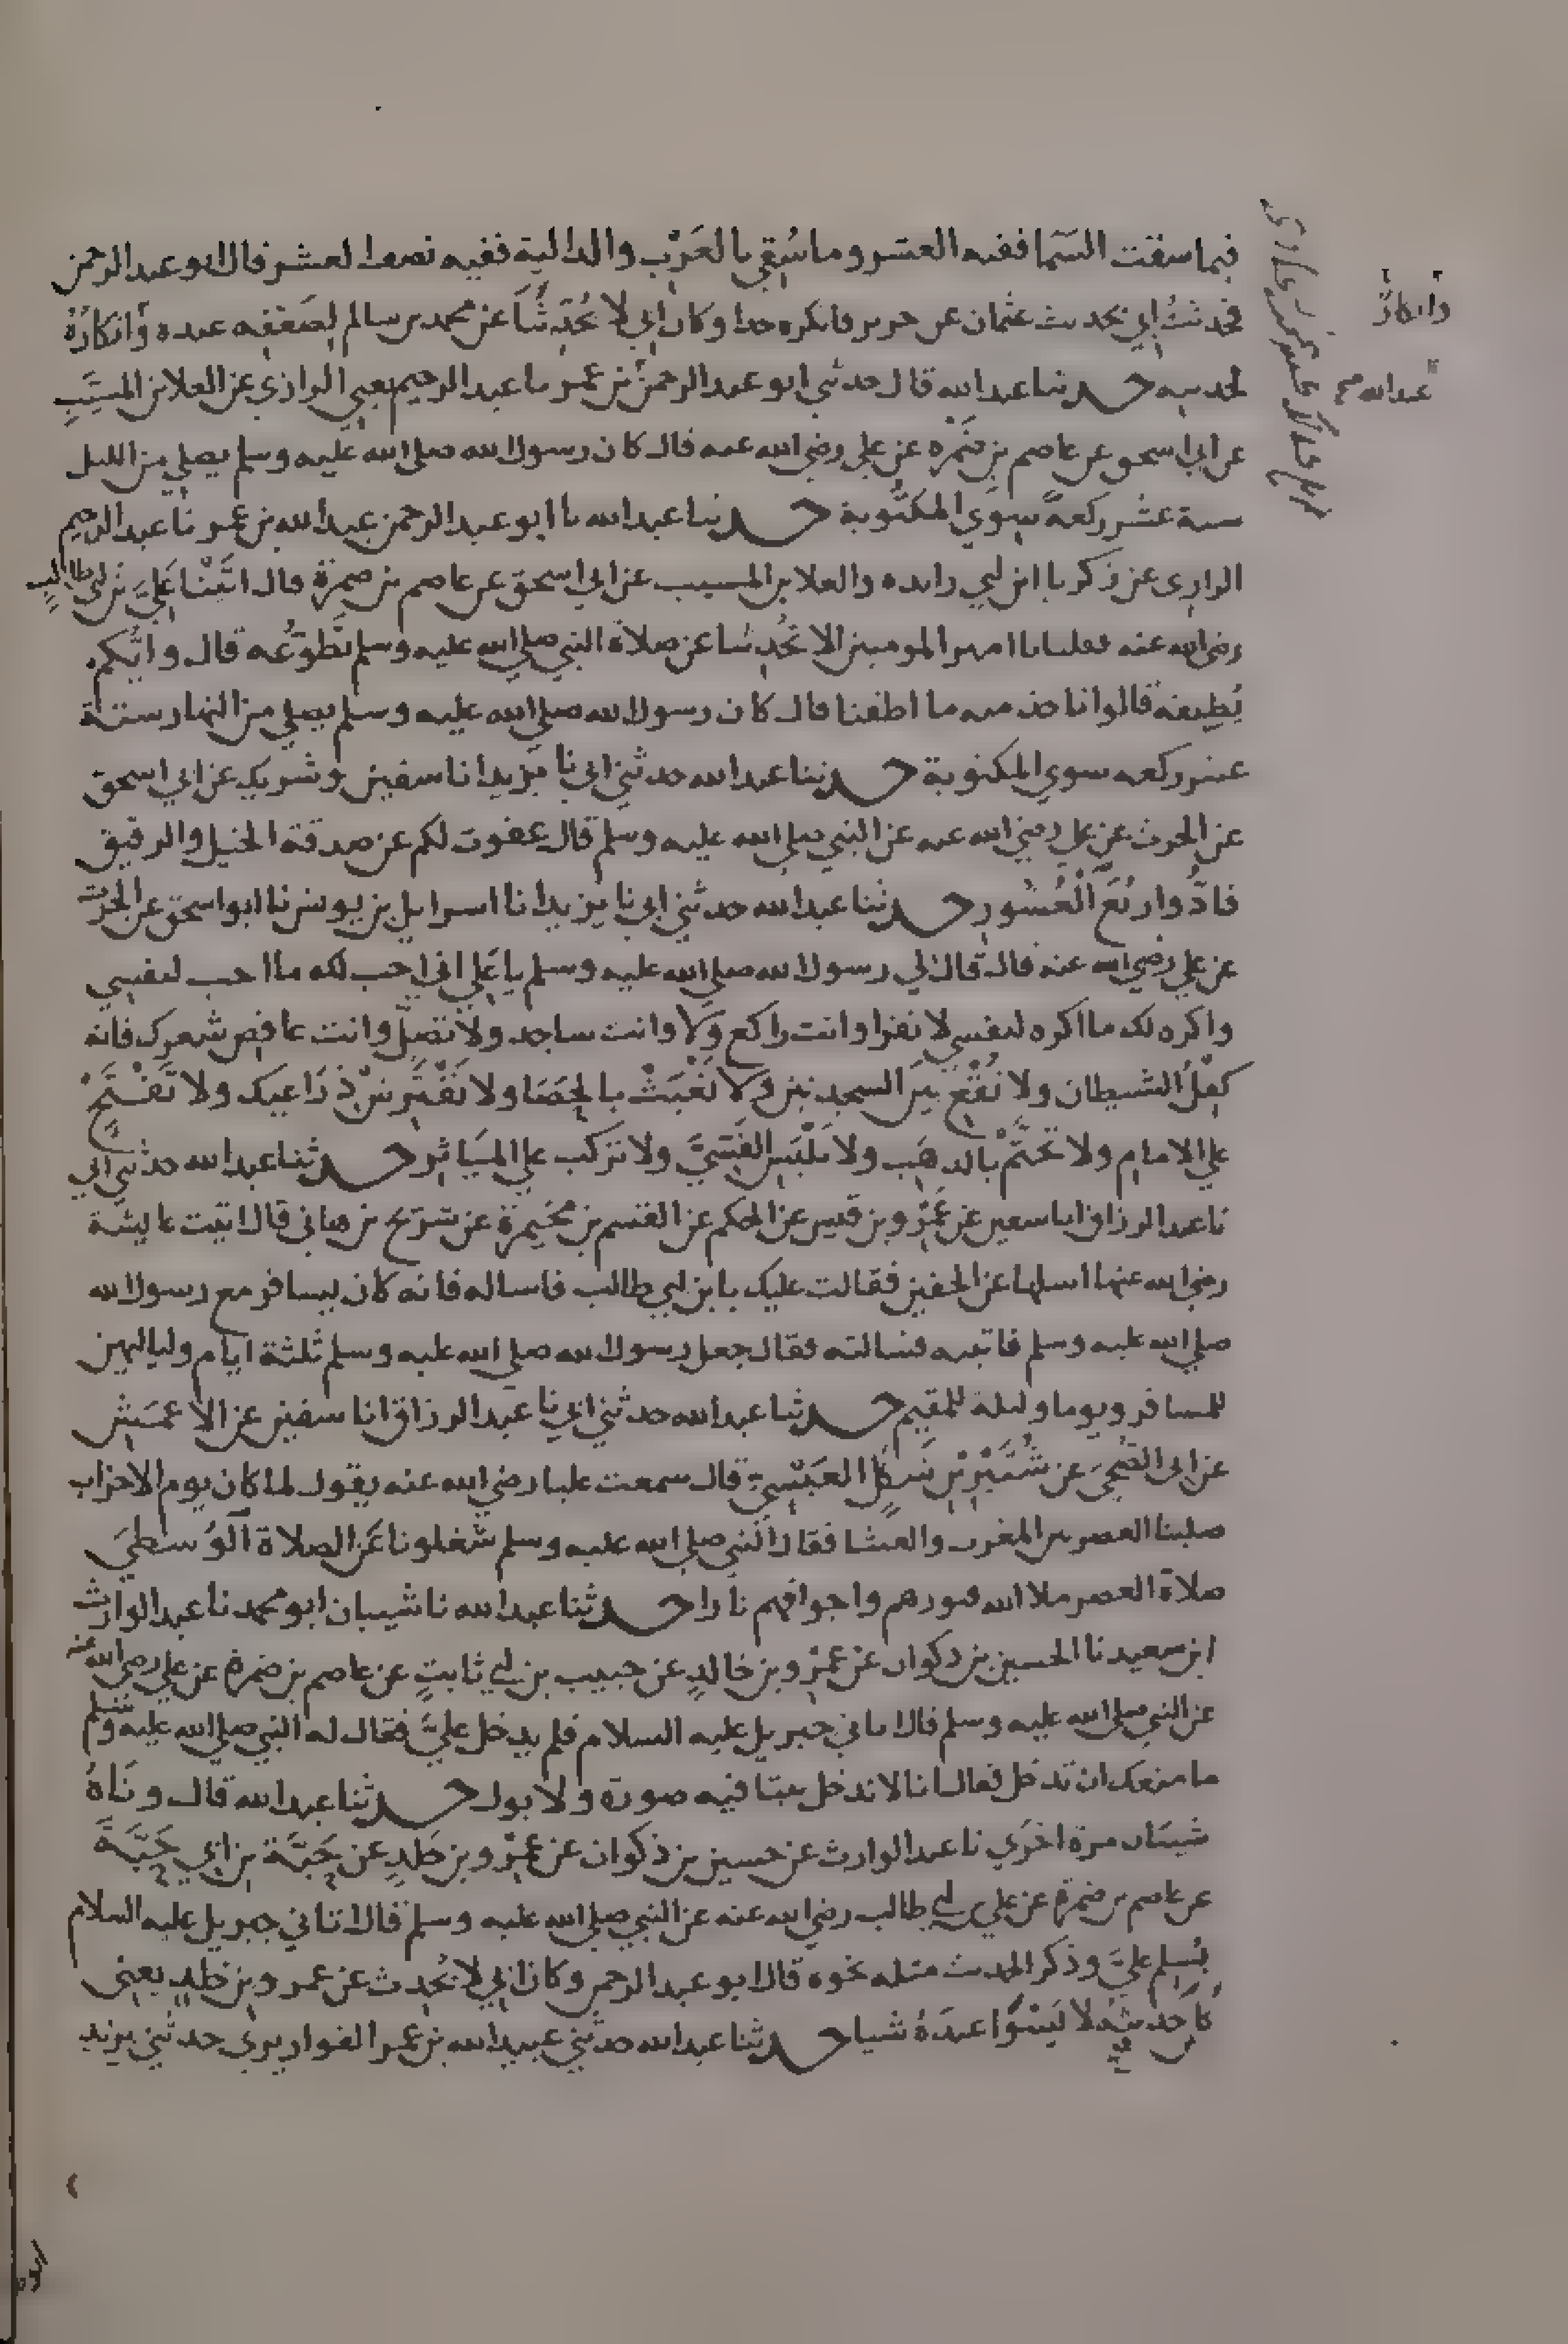 فيما سقت السما ففيه العشر وما سُقي بالغَرْب والدالية ففيه نصف العشر قال ابو عبد الرحمن
فحدثتُ ابي بحديث عثمان عن جرير فانكره جدا وكان ابي لا يُحَدِّثُنَا عن محمد بن سالم لِضَعْفِه عنده وَانكارُهُ
لحديثه حدثنا عبد الله قال حدثني ابو عبد الرحمن بن عمر نا عبد الرحيم يعني الرازي عن العلا بن المسَيَّبِ
عن ابي اسحق عن عاصم بن ضَمْرَه عن علي رضي الله عنه قال كان رسول الله صلي الله عليه وسلم يصلي من الليل
ستة عشر ركعةً سِوَي المكتُوبة حدثنا عبد الله نا ابو عبد الرحمن عبد الله بن عمر نا عبد الرحيم
الرازى عن زكريا ابن ابي زايده والعلا بن المسيب عن ابي اسحق عن عاصم بن ضمرة قال اتَيْنَا عَلِيَّ بن ابي طالب
رضي الله عنه فقلنا يا امير المومنين الا تُحَدِّثنا عن صلاة النبي صلي الله عليه وسلم تَطَوّعُه قال وايُّكم
يُطِيقه قالوا ناخذ منه ما اطقنا قال كان رسول الله صلي الله عليه وسلم يصلي من النهار ستة
عشر ركعه سوي المكتوبة حدثنا عبد الله حدثني ابي نا يزيد انا سفين وشريك عن ابي اسحق
عن الحرث عن علي رضي الله عنه عن النبي صلي الله عليه وسلم قال عفوت لكم عن صدقة الخيل والرقيق
فادُّوا رُبُعَ الْعُشُورِ حدثنا عبد الله حدثني ابي نا يزيد انا اسرايل بن يونس نا ابو اسحق عن الحرث
عن علي رضي الله عنه قال قال لي رسول الله صلي الله عليه وسلم يا عَلي اني احب لك ما احب لنفسي
واكره لك ما اكره لنفسي لا تقرا وانت راكع وَلا وانت ساجد ولا تصَلِّ وانت عاقص شعرك فانه
كِفْلُ الشيطان ولا تُقْعِ بينَ السجدتين وَلا تَعْبَثْ بالحَصَا ولا تَفْتَرِشْ ذِرَاعيك ولا تَفْتَحْ
علي الامام ولا تَختَّمْ بالدهَب ولا تَلْبَسِ القَسِّيَّ ولا تَركب علي المَيَاثر حدثنا عبد الله حدثني ابي
نا عبد الرزاق انا سفين عن عَمْرو بن قيس عن الحكم عن القسم بن مخَيمرة عن شريح بن هاني قال اتيت عايشة
رضي الله عنها اسلها عن الخفين فقالت عليك بابن ابي طالب فاساله فانه كان يسافر مع رسول الله
صلي الله عليه وسلم فاتيته فسالته فقال جعل رسول الله صلي الله عليه وسلم ثلثة ايام ولياليهن
للمسافر ويوما وليلة للمقيم حدثنا عبد الله حدثني ابي نا عبد الرزاق انا سفين عن الاعمش
عن ابي الضُحَي عن شُتَيْرِ بْنِ شَكَلٍ العَبْسِيّ قال سمعت عليا رضي الله عنه يقول لما كان يوم الاحزاب
صلينا العصر بين المغرب والعشا فقال النبي صلي الله عليه وسلم شغلونا عَن الصلاة الوُسطَي
صلاة العصر ملا الله قبورهم واجوافهم نارا حدثنا عبد الله نا شيبان ابو محمد نا عبد الوارث
ابن سعيد نا الحسين بن ذكوان عن عمْرو بن خالدٍ عن حبيب بن ابي ثابتٍ عن عاصم بن ضمرة عن علي رضي الله عنه
عن النبي صلي الله عليه وسلم قال اتاني جبريل عليه السلام فلم يدخل عليَّ فقال له النبي صلي الله عليه وسلم
ما منعك ان تدخل فقال انا لا ندخل بيتا فيه صورة ولا بول حدثنا عبد الله قال وناهُ
شيبان مرة اخرَي نا عبد الوارث عن حسين بن ذكوان عن عمْرو بن خلدٍ عن حَبَّة بن ابي حَبَّةَ
عن عاصم بن ضمرة عن علي بن ابي طالب رضي الله عنه عن النبي صلي الله عليه وسلم قال اتاني جبريل عليه السلام
يُسلم عليَّ وذكر الحديث مثله نحوه قال ابو عبد الرحمن وكان ابي لا يُحدث عن عمرو بن خلدٍ يعني
كانَ حديثُهُ لا يَسْوَا عندَهُ شيا حدثنا عبد الله حدثني عبيد الله بن عمر القواريري حدثني يزيد
وانكارُ
عبد الله صح